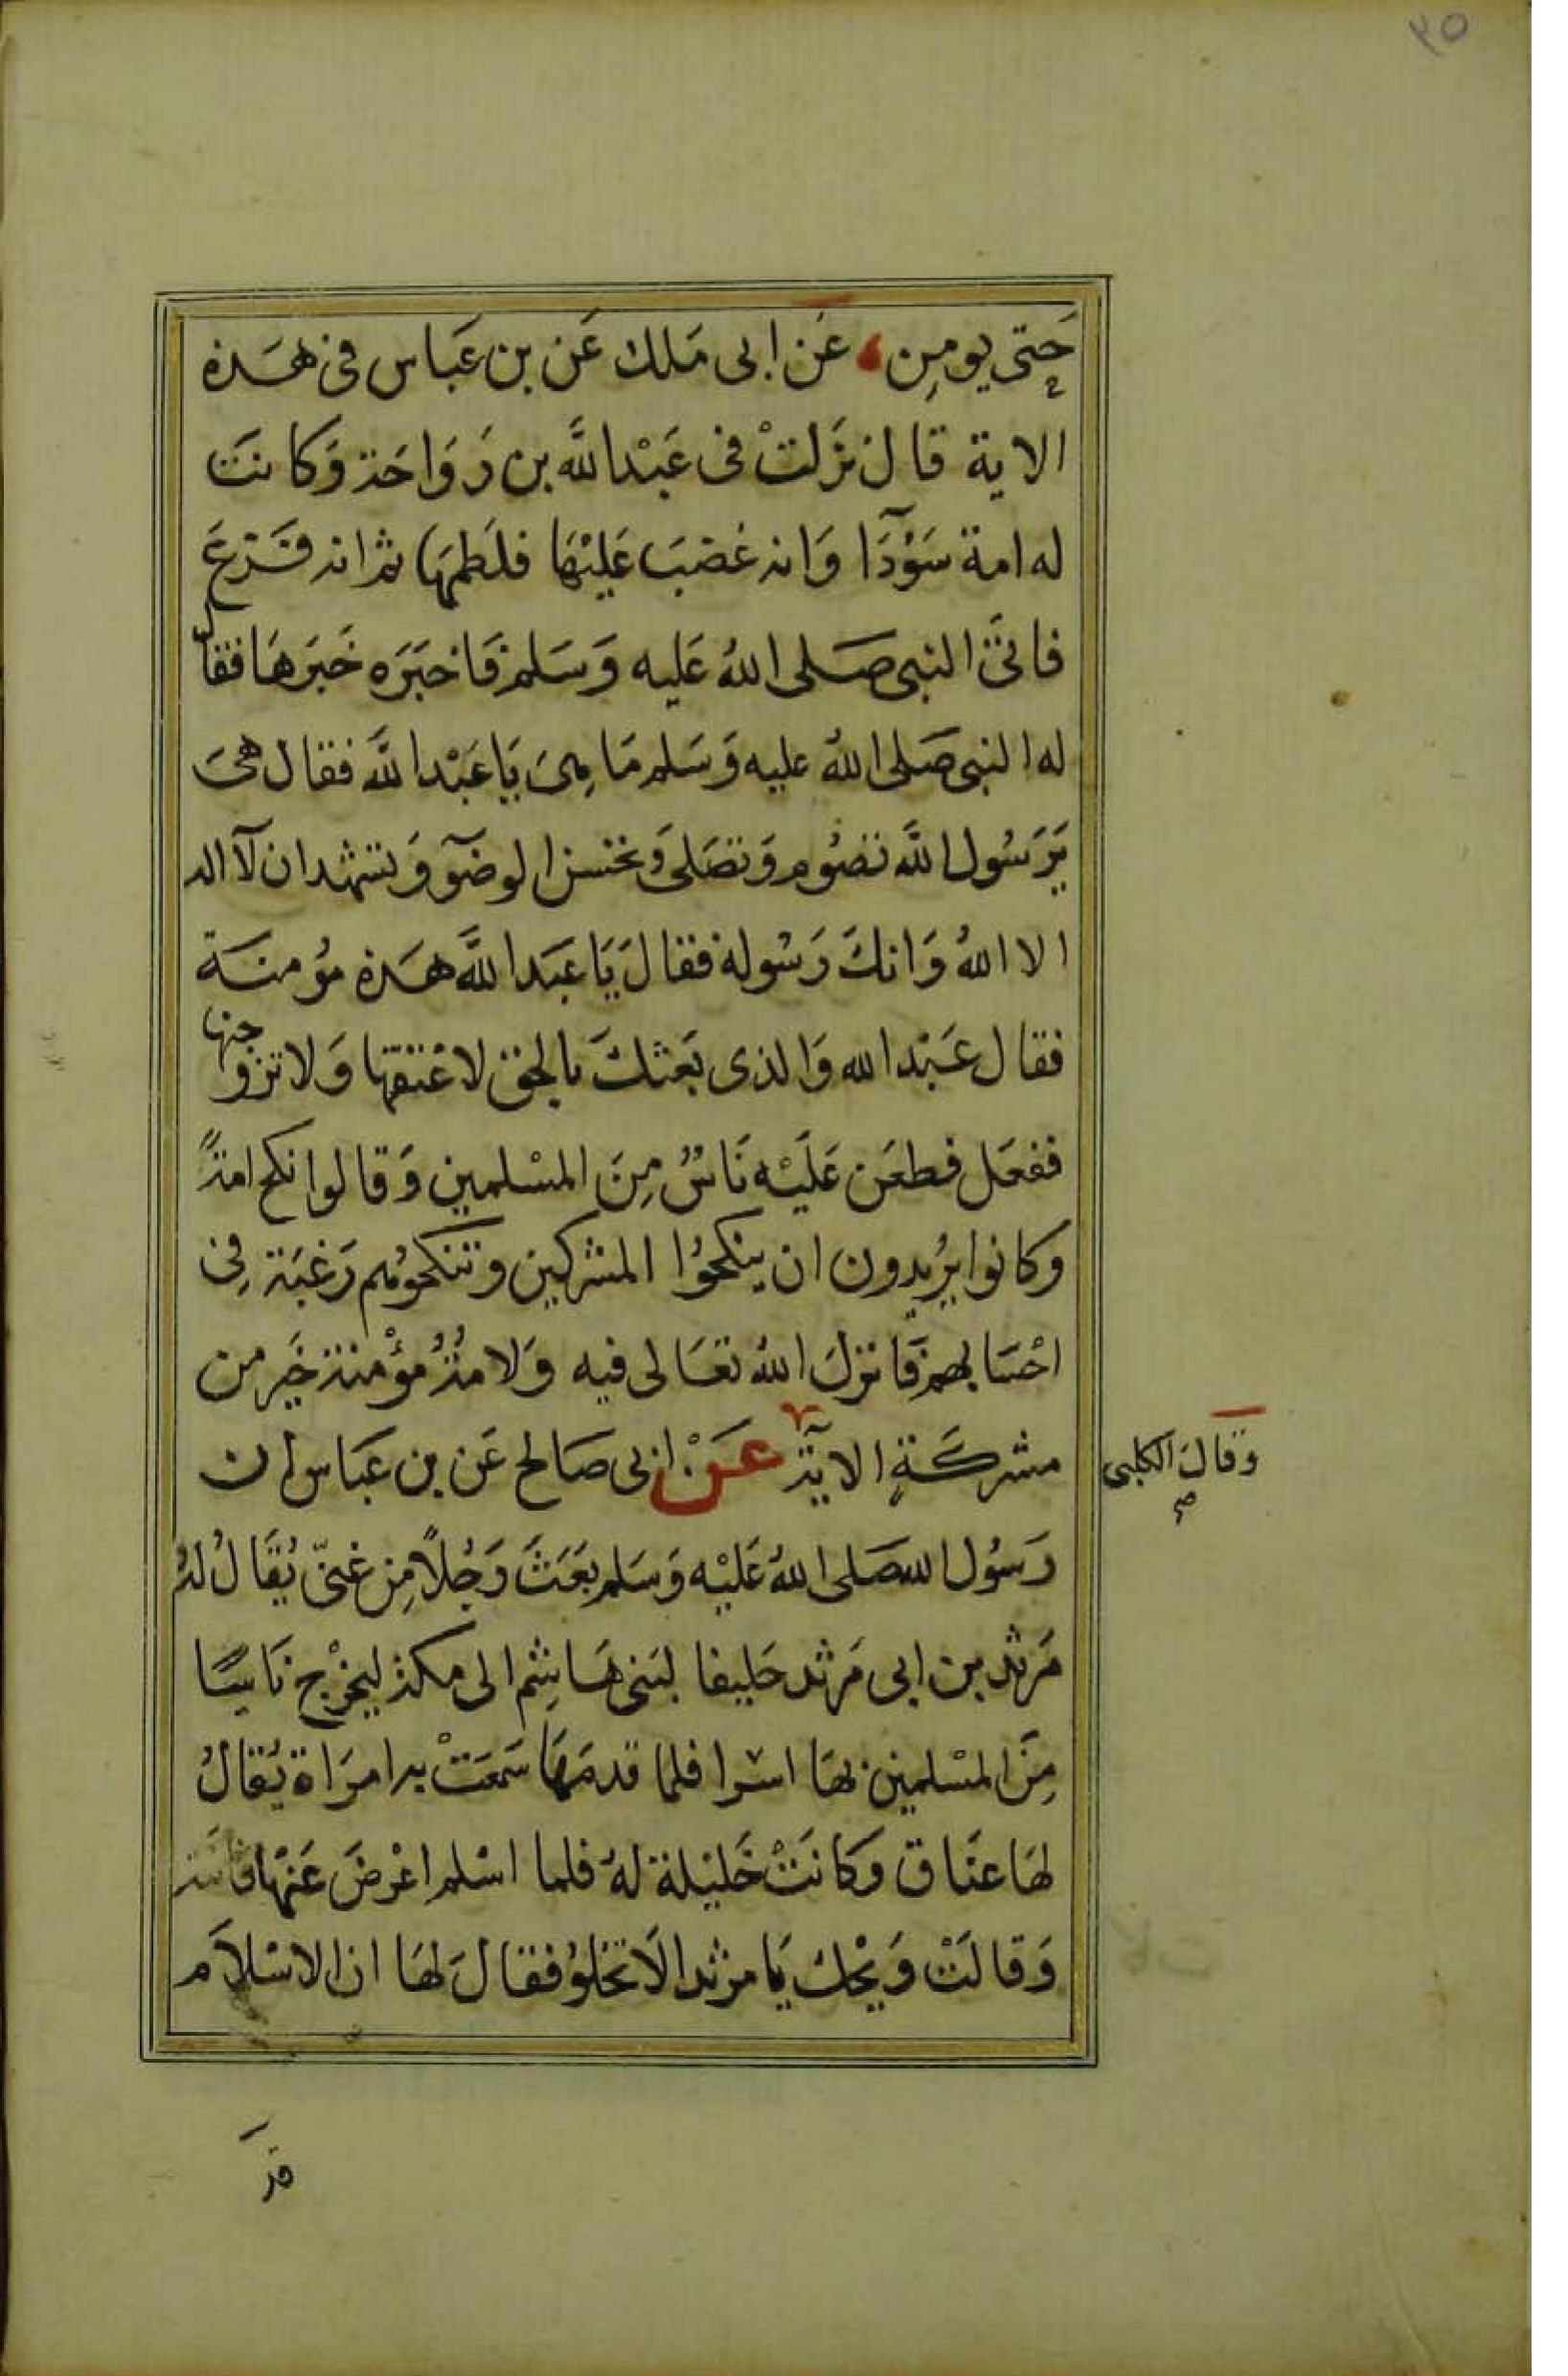 ٢٥
حَتى يومِن عَن ابى مَلك عَن بن عَباس فى هَذه
الاية قال نزَلتْ فى عَبْد اللَّه بن رَوَاحَة وَكانت
له امة سَوْدَآ وَانه غضبَ عَليْهَا فلطمهَا ثم انه فَزعَ
فاتىَ النبى صَلى اللهُ عَليه وَسَلم فَاخبَرَه خَبَرهَا فقال
له النبى صَلى اللهُ عليه وَسَلم مَا هِىَ يَا عَبْد اللَّه فقال هىَ
يَرَسُول اللَّه تصُوم وَتصَلى وَتحسن الوضوَٓ وَتشهد ان لآ اله
الا اللهُ وَانكَ رَسُوله فقالَ يَا عَبَد اللَّه هَذه مؤمنَة
فقال عَبْد الله وَالذى بَعَثكَ بالحَق لاعْتقهَا وَلاتزوجنها
ففعَل فطعَن عَلَيْه نَاسٌ مِنَ المسْلمين وَقالوا نكح امةً
وَكانوا يرُيدون ان ينكحُوا المشركين وَتنكحوُهم رَغبَة فِى
احْسَابهم فَانزلَ اللهُ تعَالى فيه وَلامَةُ مؤْمنة خَير من
مشركَةٍ الايَة عَنْ ابى صَالح عَن بن عَبَاس ان
وَقالَ الكلبى
صح
رَسُول الله صَلى اللهُ عَليْه وَسَلم بَعَثَ رَجُلاً مِن غنىّ يُقَالُ لهُ
مَرثد بن ابى مَرثد حَليفا لبَنى هَاشِم الى مكة ليخرْج نَاسًا
مِنَ المسْلمين بهَا اسرا فلما قدمَهَا سَمعَتْ به امرَاة يُقالُ
لهَا عنَاق وَكانَتْ خَليْلة لهُ فلما اسْلم اعْرضَ عَنهَا فاتته
وَقالَتْ وَيْحك يَا مرثد الَا تخلوُ فقالَ لهَا ان الاسْلاَم
قد